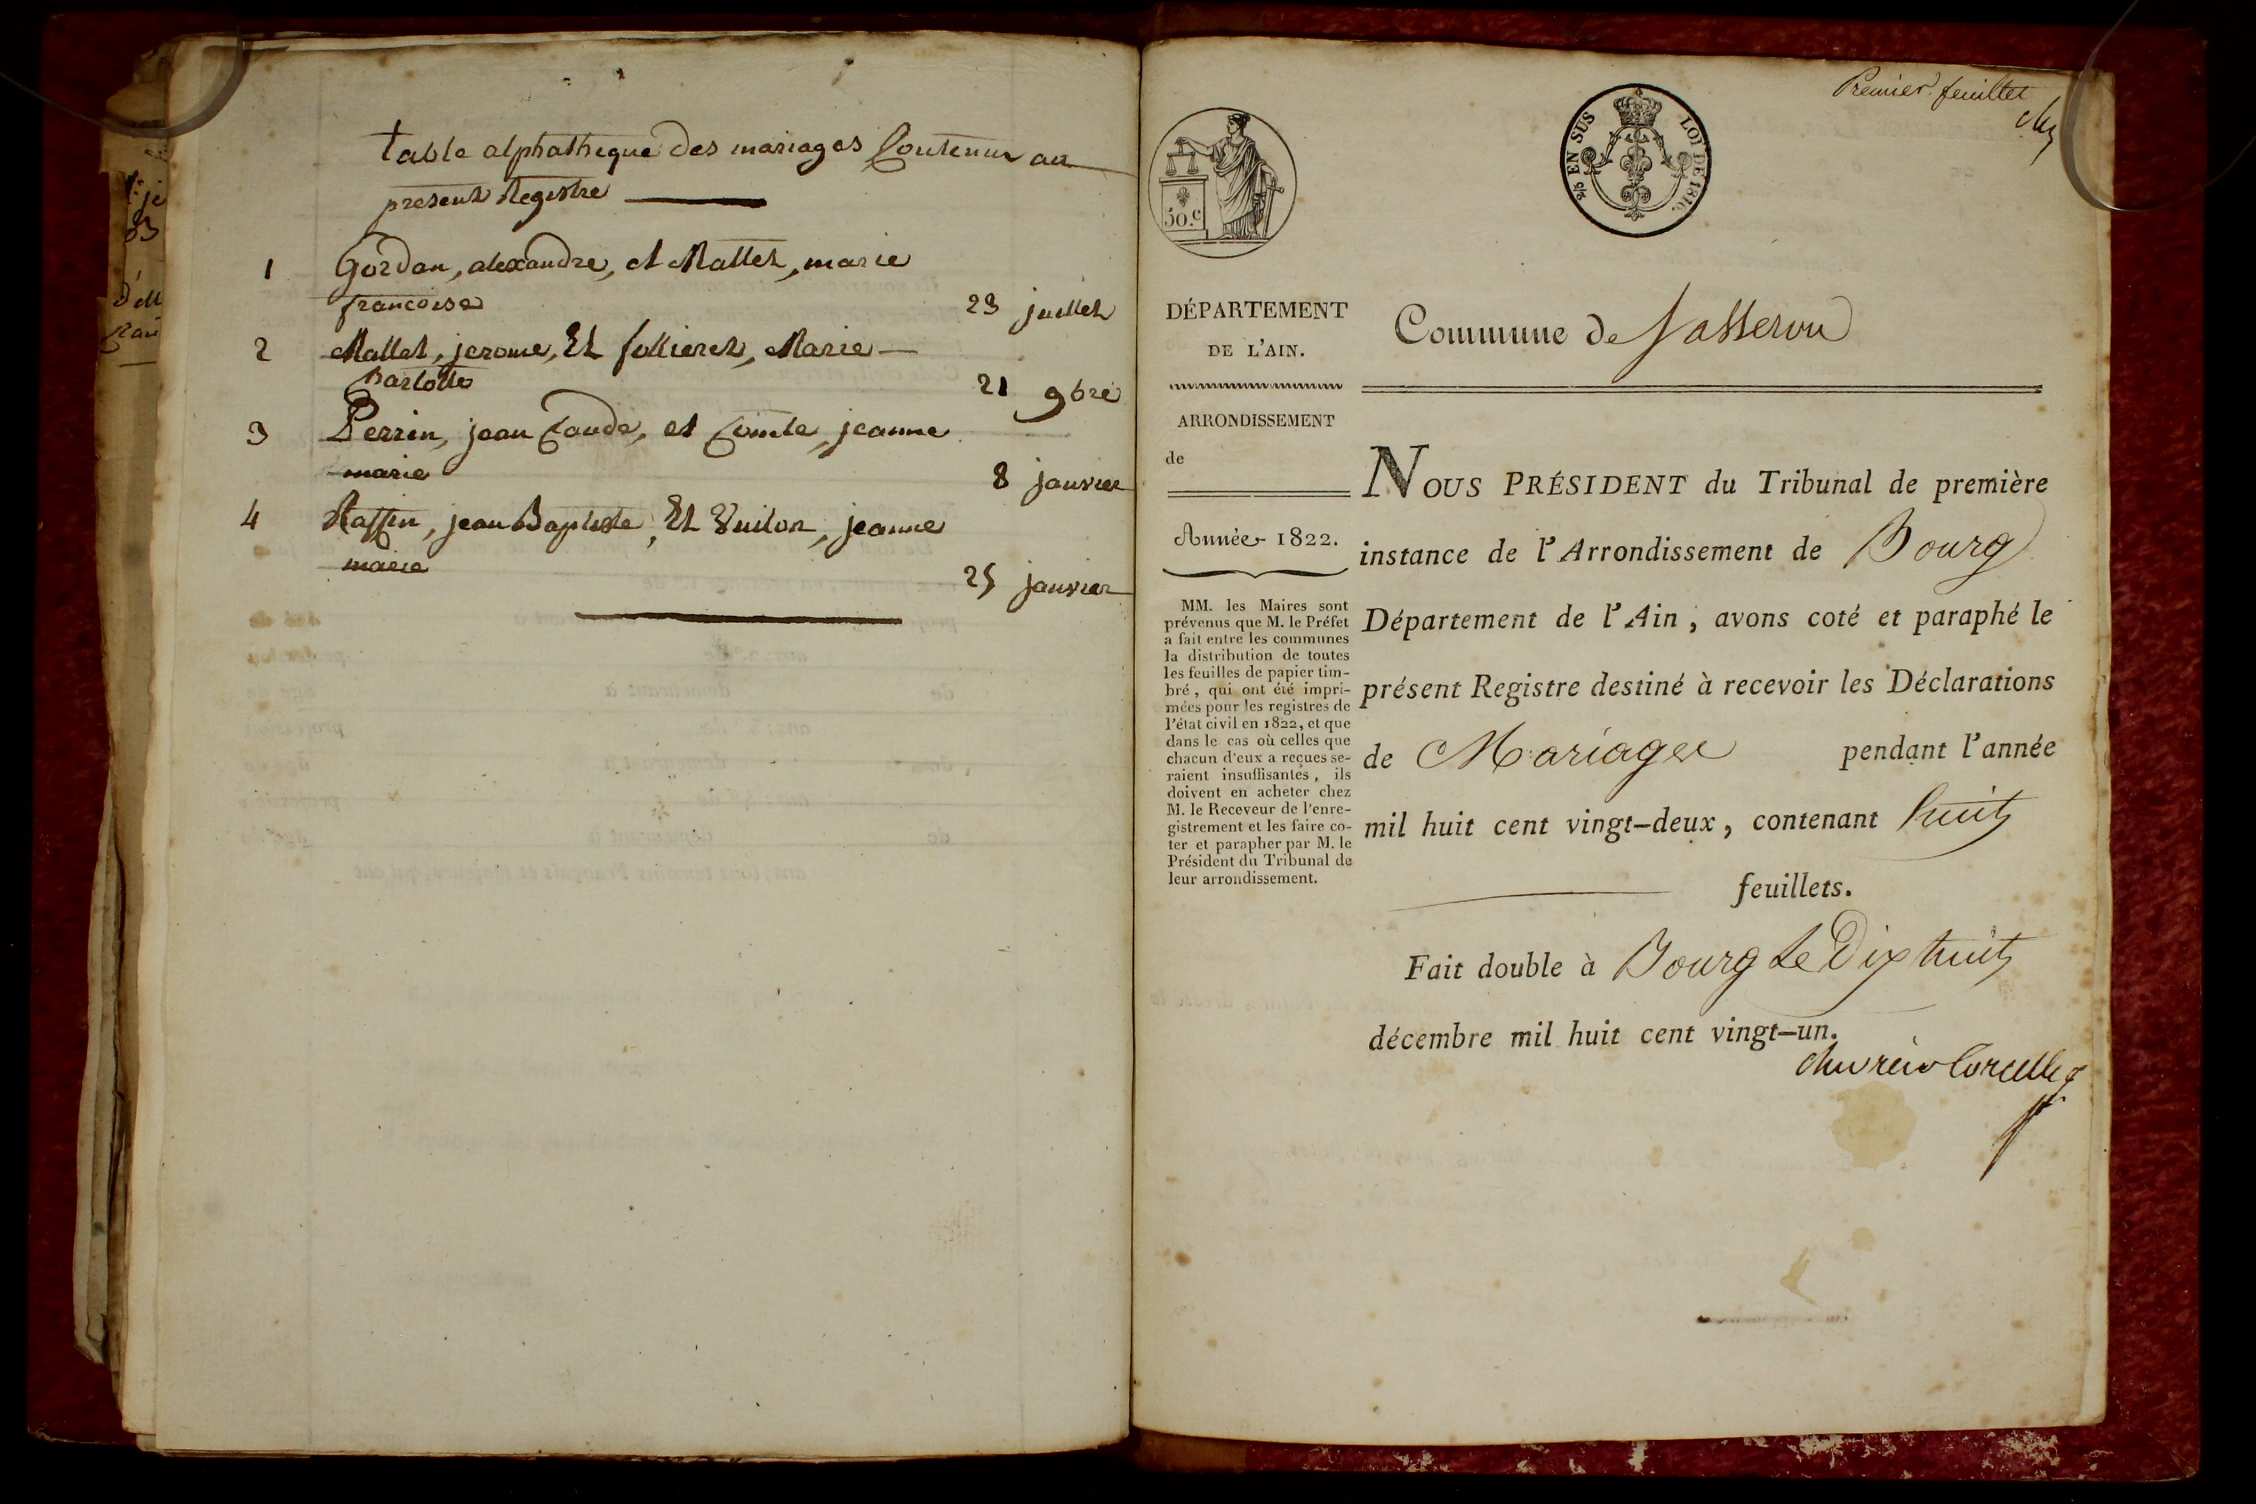 table alphathèque des mariages Contenus au
present Registre
1 Gordan, alexandre, et Mallet, marie
francoise 23 juillet
2 Mallet, jerome, Et follieret, Marie
Carlotte 21 9bre
3 Perrin, jean Claude, et Comte, jeanne
marie 8 janvier
4 Raffin, jean Baptiste, Et Vuiton, jeanne
marie 25 janvier
Premier feuillet
50.c
EN SUS
LOI DE 1816.
DÉPARTEMENT
DE L'AIN.
ARRONDISSEMENT
de
Année 1822.
MM. les Maires sont
prévenus que M. le Préfet
a fait entre les communes
la distribution de toutes
les feuilles de papier tim-
bré, qui ont été impri-
mées pour les registres de
l'état civil en 1822, et que
dans le cas où celles que
chacun d'eux a reçues se-
raient insuffisantes, ils
doivent en acheter chez
M. le Receveur de l'enre-
gistrement et les faire co-
ter et parapher par M. le
Président du Tribunal de
leur arrondissement.
Commune de Jasseron
NOUS PRÉSIDENT du Tribunal de première
instance de l'Arrondissement de Bourg
Département de l'Ain, avons coté et paraphé le
présent Registre destiné à recevoir les Déclarations
de Mariages pendant l'année
mil huit cent vingt-deux, contenant huit
feuillets.
Fait double à Bourg Le Dix huit
décembre mil huit cent vingt-un.